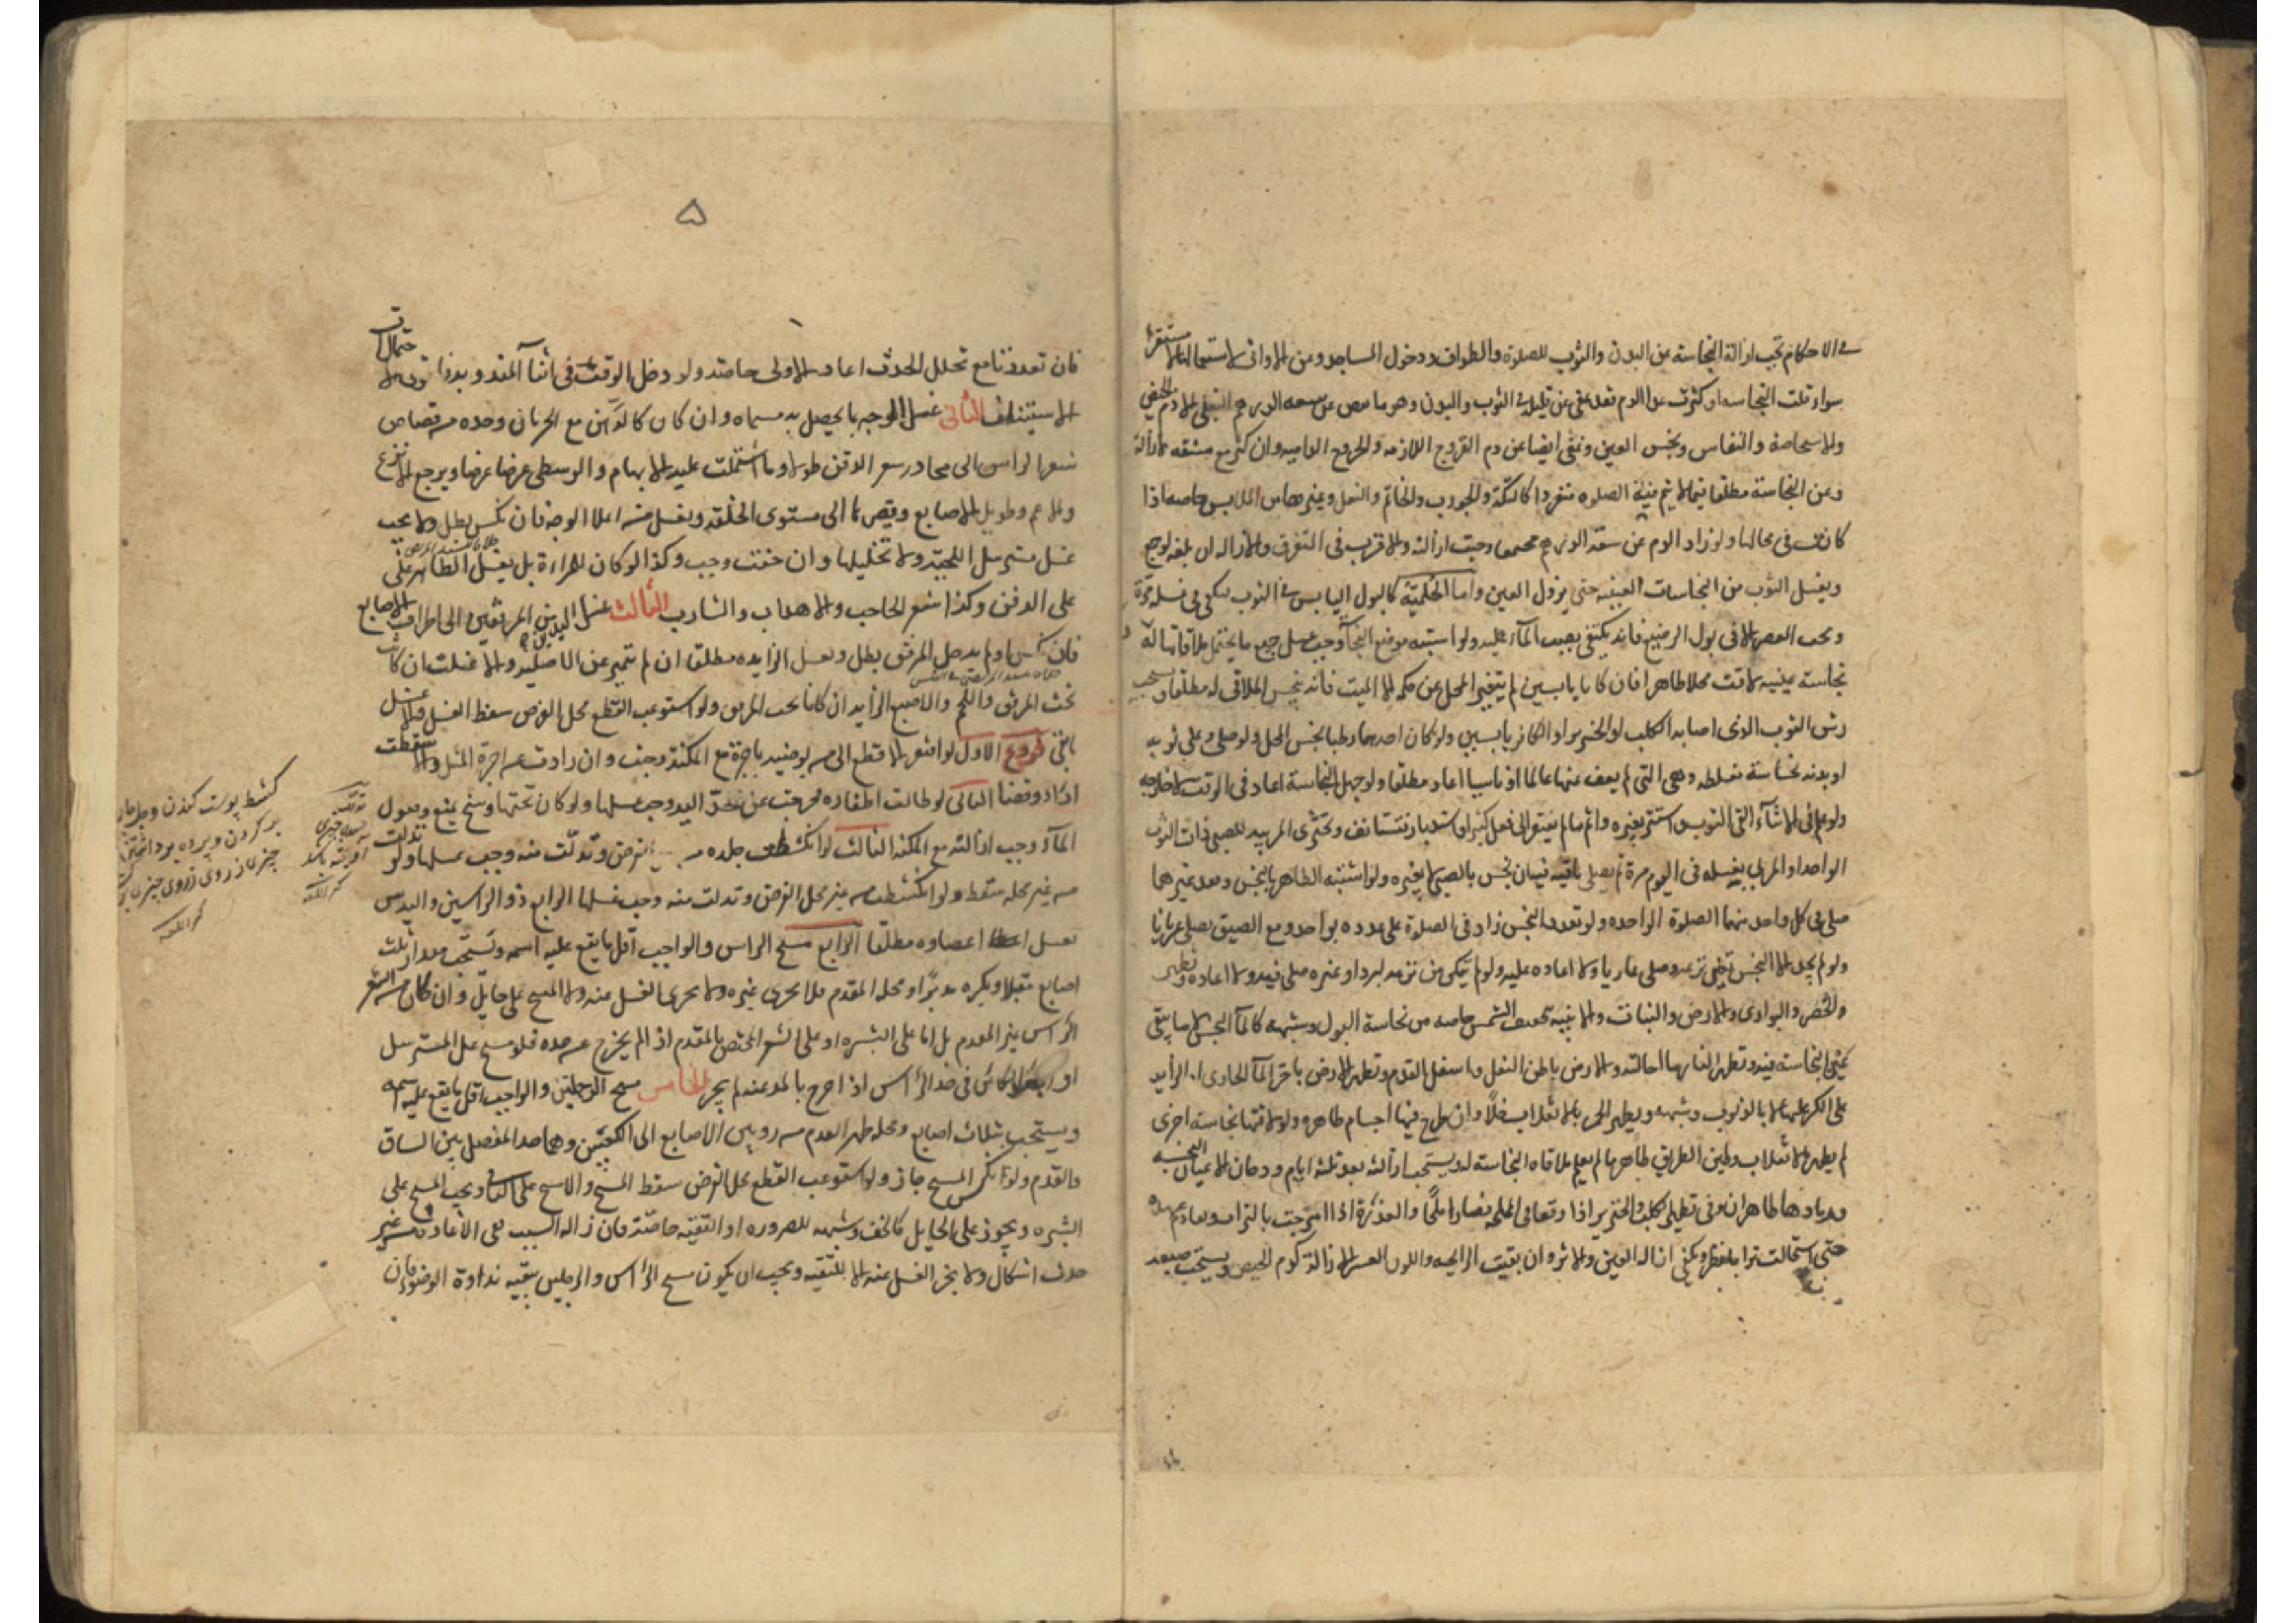 في الاحكام تجب ازالة النجاسة عن البدن والثوب للصلوة والطواف ودخول المساجد وعن الاواني لاستعمالها لا مستقرا
سواء قلت النجاسة او كثرت عدا الدم فقد عفي عن قليله في الثوب والبدن وهو ما نقص عن سعة الدرهم البغلي الا دم الحيض
والاستحاضة والنفاس ونجس العين وعفي ايضا عن دم القروح اللازمة والجروح الدامية وان كثر مع مشقة الازالة
وعن النجاسة مطلقا فيما لا يتم فيه الصلوة منفردا كالتكة والجورب والخاتم والنعل وغيرها من الملابس خاصة اذا
كانت في محالها ولو زاد الدم عن سعة الدرهم مجتمعا وجبت ازالته والاقرب في المتفرق والازالة ان بلغه لو جمع
ويغسل الثوب من النجاسات العينية حتى يزول العين واما الحكمية كالبول اليابس في الثوب فيكفي غسله مرة
ويجب العصر الا في بول الرضيع فانه يكتفي بصب الماء عليه ولو اشتبه موضع النجاسة وجب غسل جميع ما يحتمل ملاقاتها له
نجاسة عينية لاقت محلا طاهرا فان كانا يابسين لم يتغير المحل عن حكمه الا الميت فانه ينجس الملاقي له مطلقا ويستحب
رش الثوب الذي اصابه الكلب او الخنزير او الكافر يابسين ولو كان احدهما رطبا نجس المحل ولو صلى وعلى ثوبه
او بدنه نجاسة مغلظة وهي التي لم يعف عنها عالما او ناسيا اعاد مطلقا ولو جهل النجاسة اعاد في الوقت لا خارجه
ولو علم في الاثناء القى الثوب واستتر بغيره واتم ما لم يفتقر الى فعل كثير او استدبار فيستانف وتجتزي المربية للصبي ذات الثوب
الواحد او المربي بغسله في اليوم مرة ثم يصلي باقيه فيه وان نجس بالصبي لا بغيره ولو اشتبه الطاهر بالنجس وفقد غيرهما
صلى في كل واحد منهما الصلوة الواحدة ولو تعدد النجس زاد في الصلوة على عدده بواحد ومع الضيق يصلي عريانا
ولو لم يجد الا النجس تعين نزعه وصلى عاريا ولا اعادة عليه ولو لم يتمكن من نزعه لبرد او غيره صلى فيه ولا اعادة وتطهر
والحصر والبواري والارض والنبات والابنية بتجفيف الشمس خاصة من نجاسة البول وشبهه كالماء النجس لا ما يبقى
عين النجاسة فيه وتطهر النار ما احالته والارض باطن النعل واسفل القدم وتطهر الارض باجراء الماء الجاري او الزايد
على الكر عليها لا بالذنوب وشبهه ويطهر الخمر بالانقلاب خلا وان طرح فيها اجسام طاهرة ولو لاقتها نجاسة اخرى
لم يطهر بالانقلاب وطين الطريق طاهر ما لم يعلم ملاقاة النجاسة له ويستحب ازالته بعد ثلثة ايام ودخان الاعيان النجسة
ورمادها طاهران وفي تطهير الكلب والخنزير اذا وقعا في الملحة فصارا ملحا والعذرة اذا امتزجت بالتراب وتقادم عهدها
حتى استحالت ترابا نظر ويكفي ازالة العين والاثر وان بقيت الرايحة واللون العسر الازالة كدم الحيض ويستحب صبغه
٥
فان تعددتا مع تخلل الحدث اعاد الاولى خاصة ولو دخل الوقت في اثناء المندوبة احتمال
الاستيناف الثاني غسل الوجه بما يحصل به مسماه وان كان كالدهن مع الجريان وحده من قصاص
شعر الراس الى محادر شعر الذقن طولا وما اشتملت عليه الابهام والوسطى عرضا ويرجع الانزع
والاغم وطويل الاصابع وقصيرها الى مستوى الخلقة ويغسل من اعلا الوجه فان نكس بطل ولا يجب
غسل مسترسل اللحية ولا تخليلها وان خفت وجب وكذا لو كان للمراة بل يغسل الظاهر على
على الذقن وكذا شعر الحاجب والاهداب والشارب الثالث غسل اليدين من المرفقين الى اطراف الاصابع
فان نكس او لم يدخل المرفق بطل ويغسل الزايدة مطلقا ان لم تتميز عن الاصلية والا غسلت ان كانت
تحت المرفق واللحم والاصبع الزايد ان كانا تحت المرفق ولو استوعب القطع محل الفرض سقط الغسل والا غسل
ما بقي فروع الاول لو افتقر الاقطع الى من يوضيه باجرة مع المكنة وجبت وان زادت عن اجرة المثل والا سقطت
اداء وقضاء الثاني لو طالت اظفاره فخرجت عن حد اليد وجب غسلها ولو كان تحتها وسخ يمنع وصول
الماء وجب ازالته مع المكنة الثالث لو انكشطت جلدة من الفرض وتدلت منه وجب غسلها ولو تدلت
من غير محله سقط ولو انكشطت من غير محل الفرض وتدلت منه وجب غسلها الرابع ذو الراسين والبدنين
يغسل اعضاوه مطلقا الرابع مسح الراس والواجب اقل ما يقع عليه اسمه ويستحب مقدار ثلث
اصابع مقبلا ويكره مدبرا ومحله المقدم فلا يجزي غيره ولا يجزي الغسل عنه ولا المسح على حايل وان كان من الشعر
الراس غير المقدم بل اما على البشرة او على الشعر المختص بالمقدم اذا لم يخرج عن حده فلو مسح على المسترسل
او الجعد الكائن في حد الراس اذا خرج بالمد عنه لم يجز الخامس مسح الرجلين والواجب اقل ما يقع عليه اسمه
ويستحب بثلاث اصابع ومحله ظهر القدم من رؤس الاصابع الى الكعبين وهما حد المفصل بين الساق
والقدم ولو نكس المسح جاز ولو استوعب القطع محل الفرض سقط المسح والا مسح على الباقي ويجب المسح على
البشرة ويجوز على الحايل كالخف وشبهه للضرورة او التقية خاصة فان زال السبب ففي الاعادة من غير
حدث اشكال ولا يجزي الغسل عنه الا للتقية ويجب ان يكون مسح الراس والرجلين ببقية نداوة الوضوء فان
كشط پوست كندن
بر كردن و پرده بر داشتن
چيزى از روى چيزى
كنز اللغة
كنز اللغة